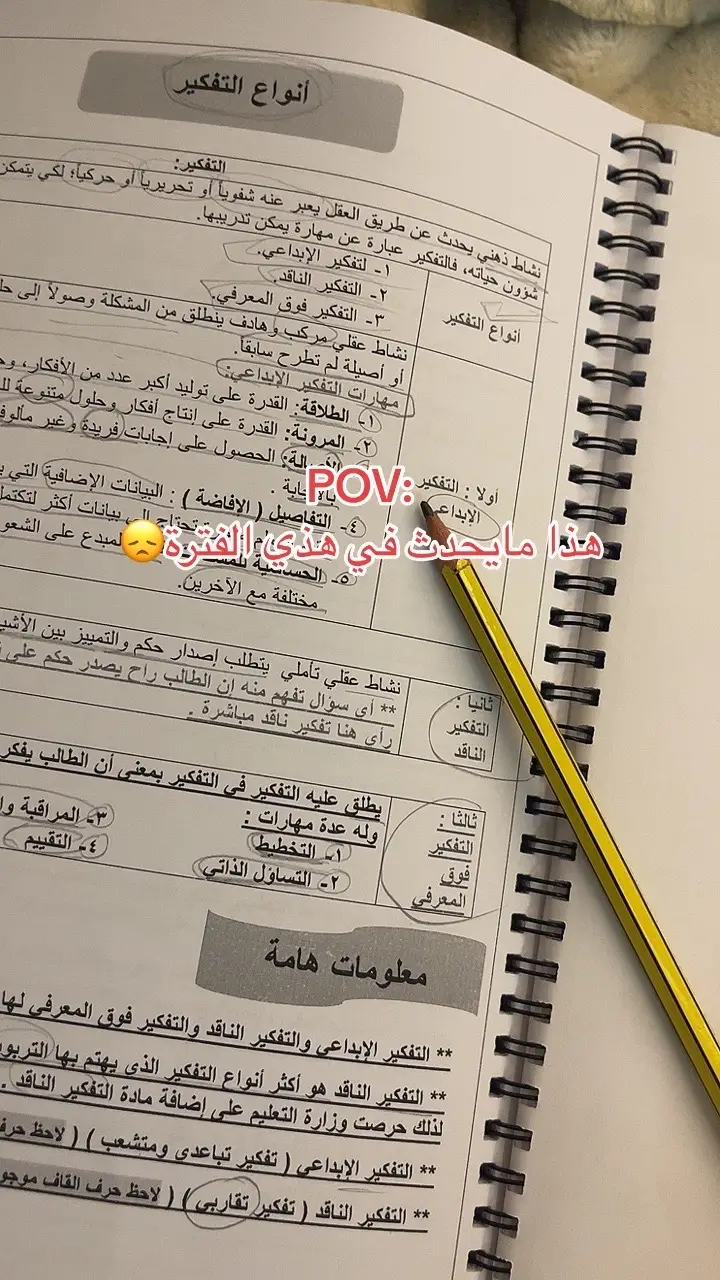 أنواع التفكير
التفكير:
نشاط ذهني يحدث عن طريق العقل يعبر عنه شفوياً أو تحريرياً أو حركياً؛ لكي يتمكن
شؤون حياته، فالتفكير عبارة عن مهارة يمكن تدريبها.
أنواع التفكير
١- لتفكير الإبداعي.
٢- التفكير الناقد.
٣- التفكير فوق المعرفي.
أولا : التفكير
الإبداعي
نشاط عقلي مركب وهادف ينطلق من المشكلة وصولاً إلى
أو أصيلة لم تطرح سابقاً.
مهارات التفكير الإبداعي:
١- الطلاقة: القدرة على توليد أكبر عدد من الأفكار،
٢- المرونة: القدرة على إنتاج أفكار وحلول متنوعة
الحصول على إجابات فريدة وغير
٤- التفاصيل ( الإفاضة ) : البيانات الإضافية التي
تحتاج إلى بيانات أكثر لتكتمل
٥- الحساسية على الشعور
مختلفة مع الآخرين.
POV:
هذا مايحدث في هذي الفترة😞
ثانيا :
التفكير
الناقد
نشاط عقلي تأملي يتطلب إصدار حكم والتمييز بين
** أي سؤال تفهم منه إن الطالب راح يصدر حكم على
رأى هنا تفكير ناقد مباشرة .
ثالثا :
التفكير
فوق
المعرفي
يطلق عليه التفكير في التفكير بمعنى أن الطالب يفكر
وله عدة مهارات :
١- التخطيط
٢- التساؤل الذاتي
٣- المراقبة
٤- التقييم
معلومات هامة
** التفكير الإبداعي والتفكير الناقد والتفكير فوق المعرفي لها
** التفكير الناقد هو أكثر أنواع التفكير الذي يهتم بها
لذلك حرصت وزارة التعليم على إضافة مادة التفكير الناقد .
** التفكير الإبداعي ( تفكير تباعدي ومتشعب ) ( لاحظ حرف
** التفكير الناقد ( تفكير تقاربي ) ( لاحظ حرف القاف